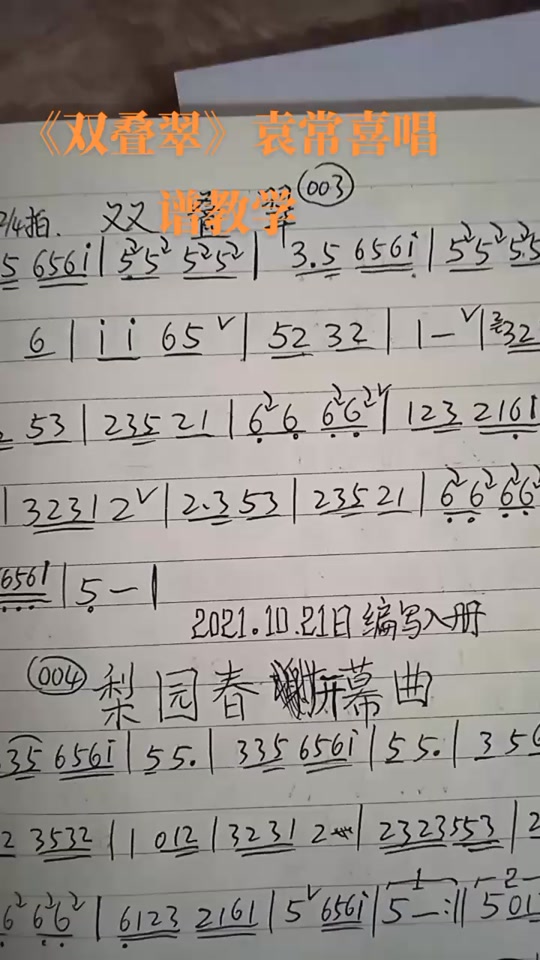 《双叠翠》袁常喜唱
谱教学
2/4拍. 双叠翠 003
5 656i | 5²5² 5²5² | 3.5 656i | 5²5² 5²5
6 | i i 65ˇ | 52 32 | 1-ˇ | 32
53 | 235 21 | 6²6 6²6²ˇ | 123 2161
| 3231 2ˇ | 2.3 53 | 235 21 | 6²6² 6²6²
6561 | 5 - |
2021.10.21日编写入册
004 梨园春 谢屏幕曲
35 656i | 55. | 335 656i | 55. | 3 5 6
2 3532 | 1 012 | 3231 2 | 2323553 | 2
6² 6²6² | 6123 2161 | 5ˇ 656i | 1 5 -:|| 2 5 01